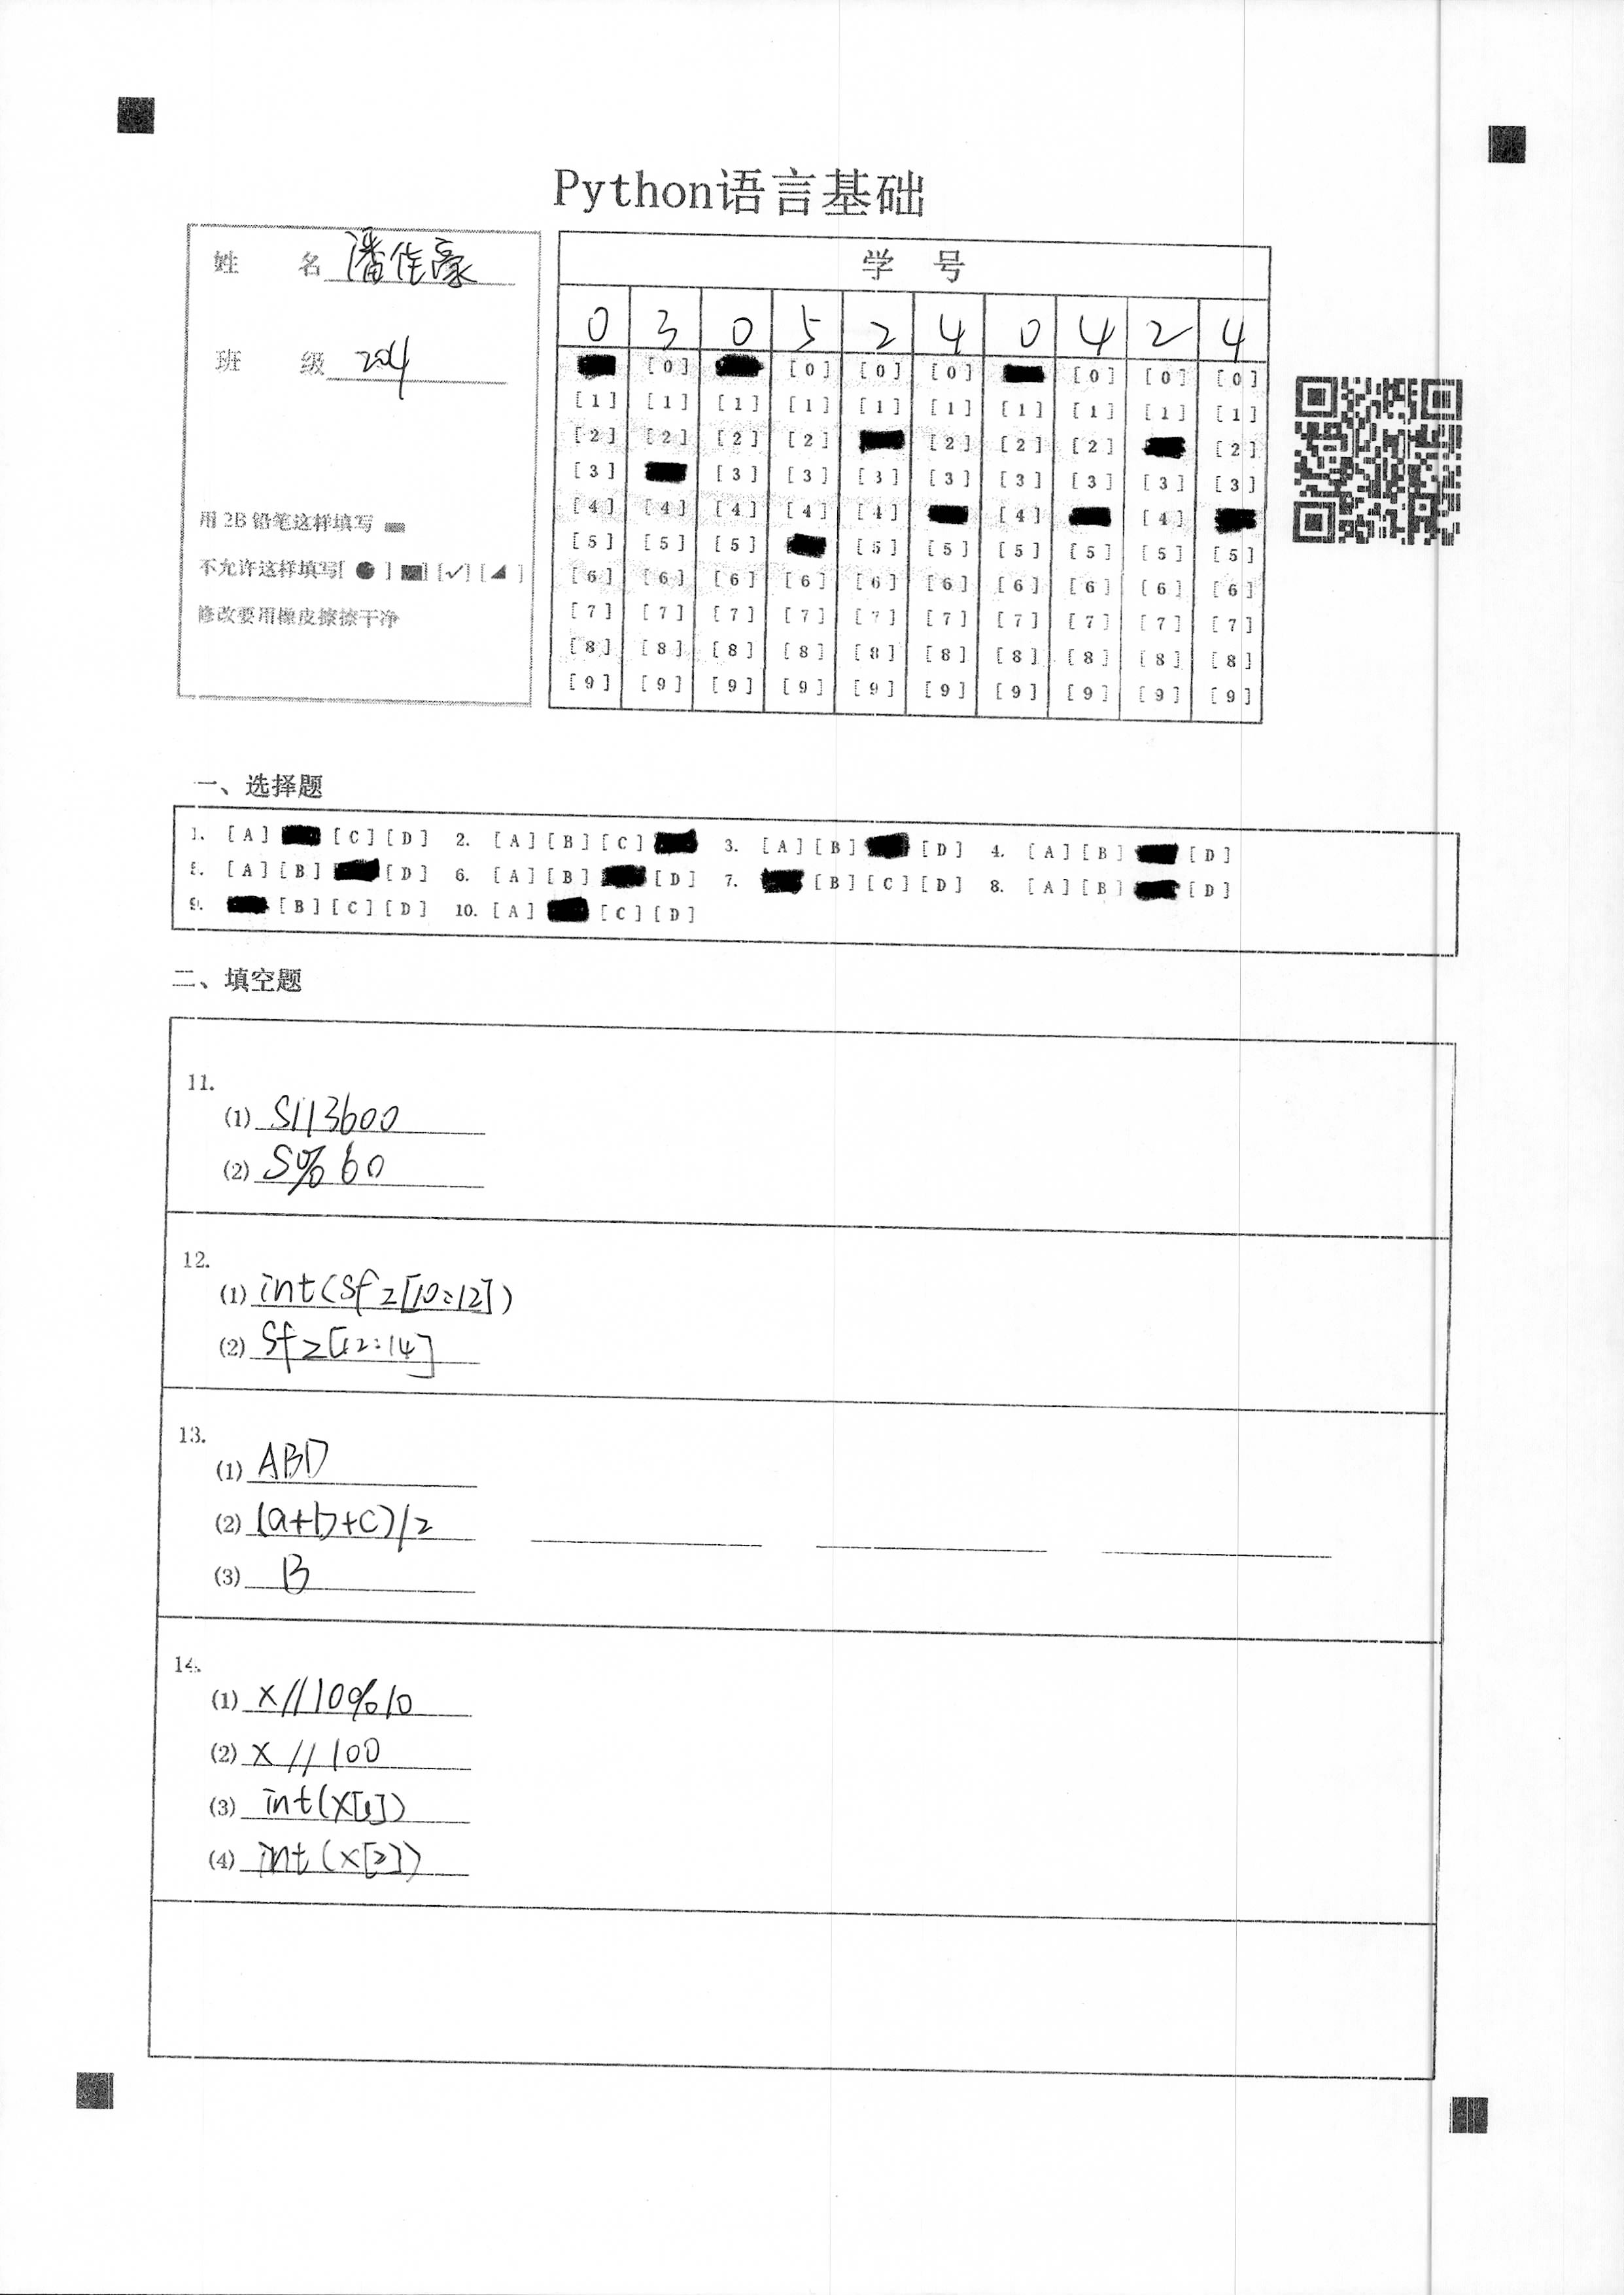 Python语言基础
姓 名 潘佳豪
班 级 204
用 2B 铅笔这样填写
不允许这样填写[ ● ] [■] [✓] [◢ ]
修改要用橡皮擦擦干净
学 号
0 3 0 5 2 4 0 4 2 4
[0] [0] [0] [0] [0] [0] [0]
[1] [1] [1] [1] [1] [1] [1] [1] [1] [1]
[2] [2] [2] [2] [2] [2] [2] [2]
[3] [3] [3] [3] [3] [3] [3] [3] [3]
[4] [4] [4] [4] [4] [4] [4]
[5] [5] [5] [5] [5] [5] [5] [5] [5]
[6] [6] [6] [6] [6] [6] [6] [6] [6] [6]
[7] [7] [7] [7] [7] [7] [7] [7] [7] [7]
[8] [8] [8] [8] [8] [8] [8] [8] [8] [8]
[9] [9] [9] [9] [9] [9] [9] [9] [9] [9]
一、选择题
1. [A] [C] [D] 2. [A] [B] [C] 3. [A] [B] [D] 4. [A] [B] [D]
5. [A] [B] [D] 6. [A] [B] [D] 7. [B] [C] [D] 8. [A] [B] [D]
9. [B] [C] [D] 10. [A] [C] [D]
二、填空题
11.
(1) S//3600
(2) S%60
12.
(1) int(sfz[10:12])
(2) sfz[12:14]
13.
(1) ABD
(2) (a+b+c)/2
(3) B
14.
(1) x//10%10
(2) x//100
(3) int(x[1])
(4) int(x[2])